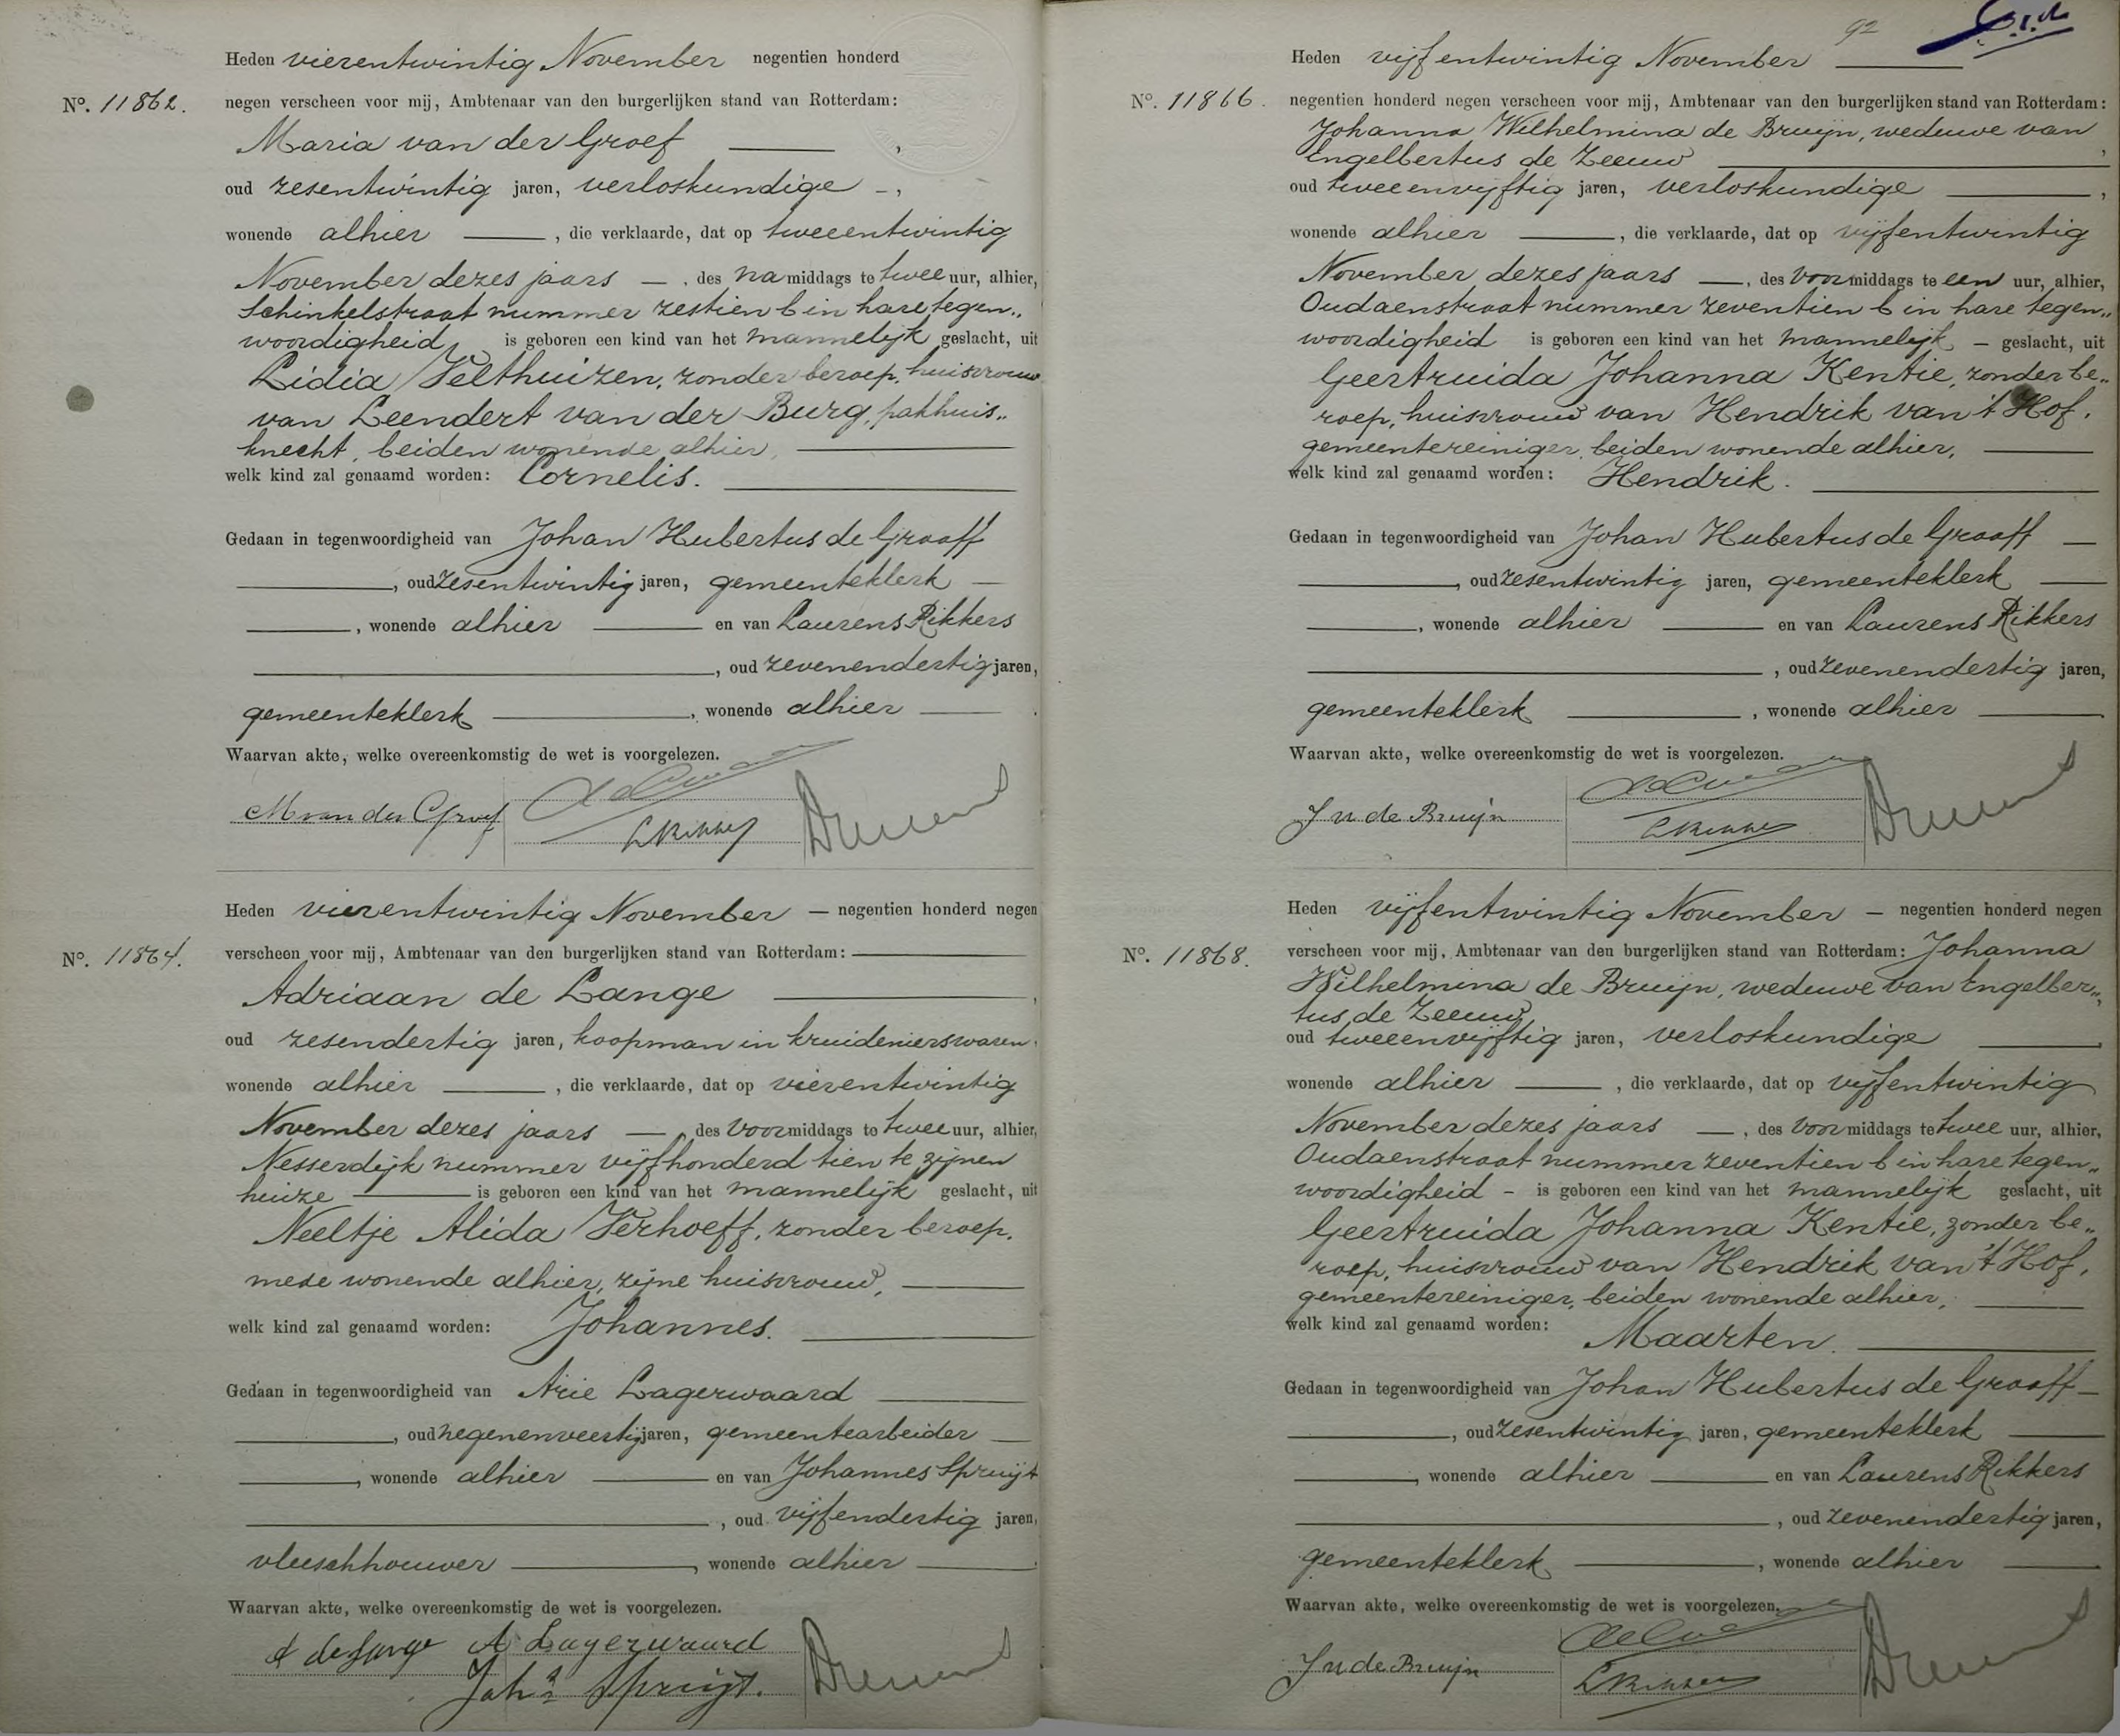 Heden vierentwintig November negentien honderd
No. 11862. negen verscheen voor mij, Ambtenaar van den burgerlijken stand van Rotterdam:
Maria van der Groef ,
oud zesentwintig jaren, verloskundige ,
wonende alhier , die verklaarde, dat op tweeentwintig
November dezes jaars , des na middags te twee uur, alhier,
Schinkelstraat nummer zestien b in hare tegen„
woordigheid, is geboren een kind van het mannelijk geslacht, uit
Lidia Velthuizen, zonder beroep, huisvrouw
van Leendert van der Burg, pakhuis„
knecht, beiden wonende alhier,
welk kind zal genaamd worden: Cornelis.
Gedaan in tegenwoordigheid van Johan Hubertus de Graaff
, oud zesentwintig jaren, gemeenteklerk
, wonende alhier en van Laurens Rikkers
, oud zevenendertig jaren,
gemeenteklerk , wonende alhier .
Waarvan akte, welke overeenkomstig de wet is voorgelezen.
M van der Groef
L Rikkers
Heden vierentwintig November negentien honderd negen
No. 11864. verscheen voor mij, Ambtenaar van den burgerlijken stand van Rotterdam:
Adriaan de Lange ,
oud zesendertig jaren, koopman in kruidenierswaren,
wonende alhier , die verklaarde, dat op vierentwintig
November dezes jaars , des voormiddags te twee uur, alhier,
Nesserdijk nummer vijfhonderd tien te zijnen
huize is geboren een kind van het mannelijk geslacht, uit
Neeltje Alida Verhoeff, zonder beroep,
mede wonende alhier, zijne huisvrouw,
welk kind zal genaamd worden: Johannes.
Gedaan in tegenwoordigheid van Arie Lagerwaard
, oud negenenveertig jaren, gemeentearbeider
, wonende alhier en van Johannes Spruijt
, oud vijfendertig jaren,
vleeschhouwer , wonende alhier .
Waarvan akte, welke overeenkomstig de wet is voorgelezen.
A de Lange A Lagerwaard
Johs Spruijt.
92
Heden vijfentwintig November
No. 11866. negentien honderd negen verscheen voor mij, Ambtenaar van den burgerlijken stand van Rotterdam:
Johanna Wilhelmina de Bruijn, weduwe van
Engelbertus de Zeeuw ,
oud tweeenvijftig jaren, verloskundige ,
wonende alhier , die verklaarde, dat op vijfentwintig
November dezes jaars , des voormiddags te een uur, alhier,
Oudaenstraat nummer zeventien b in hare tegen„
woordigheid is geboren een kind van het mannelijk geslacht, uit
Geertruida Johanna Kentie, zonder be„
roep, huisvrouw van Hendrik van 't Hof,
gemeentereiniger, beiden wonende alhier,
welk kind zal genaamd worden: Hendrik.
Gedaan in tegenwoordigheid van Johan Hubertus de Graaff
, oud zesentwintig jaren, gemeenteklerk
, wonende alhier en van Laurens Rikkers
, oud zevenendertig jaren,
gemeenteklerk , wonende alhier .
Waarvan akte, welke overeenkomstig de wet is voorgelezen.
J W de Bruijn
L Rikkers
Heden vijfentwintig November negentien honderd negen
No. 11868. verscheen voor mij, Ambtenaar van den burgerlijken stand van Rotterdam: Johanna
Wilhelmina de Bruijn, weduwe van Engelber„
tus de Zeeuw,
oud tweeenvijftig jaren, verloskundige ,
wonende alhier , die verklaarde, dat op vijfentwintig
November dezes jaars , des voormiddags te twee uur, alhier,
Oudaenstraat nummer zeventien b in hare tegen„
woordigheid - is geboren een kind van het mannelijk geslacht, uit
Geertruida Johanna Kentie, zonder be„
roep, huisvrouw van Hendrik van 't Hof,
gemeentereiniger, beiden wonende alhier,
welk kind zal genaamd worden: Maarten.
Gedaan in tegenwoordigheid van Johan Hubertus de Graaff
, oud zesentwintig jaren, gemeenteklerk
, wonende alhier en van Laurens Rikkers
, oud zevenendertig jaren,
gemeenteklerk , wonende alhier
Waarvan akte, welke overeenkomstig de wet is voorgelezen.
J W de Bruijn
L Rikkers